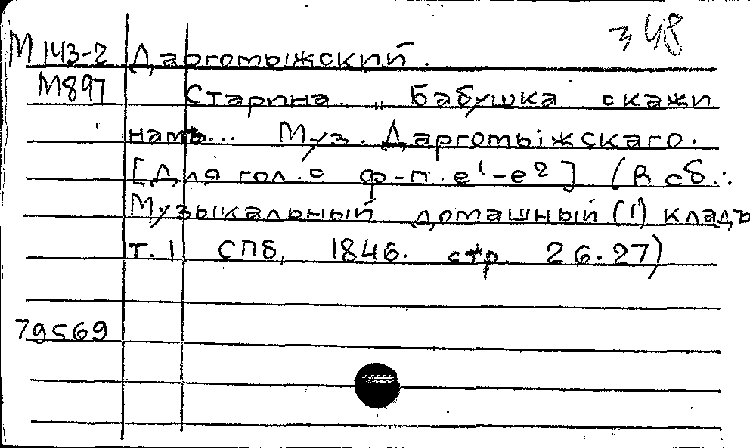 з 48
М 143-2 Даргомыжский.
М897 Старина „ Бабушка скажи
намъ... Муз. Даргомыжскаго.
[Для гол. с ф-п. e¹-e²] (В сб.:
Музыкальный домашный (!) кладъ
т. 1 СПб, 1846. стр. 26-27)
79569